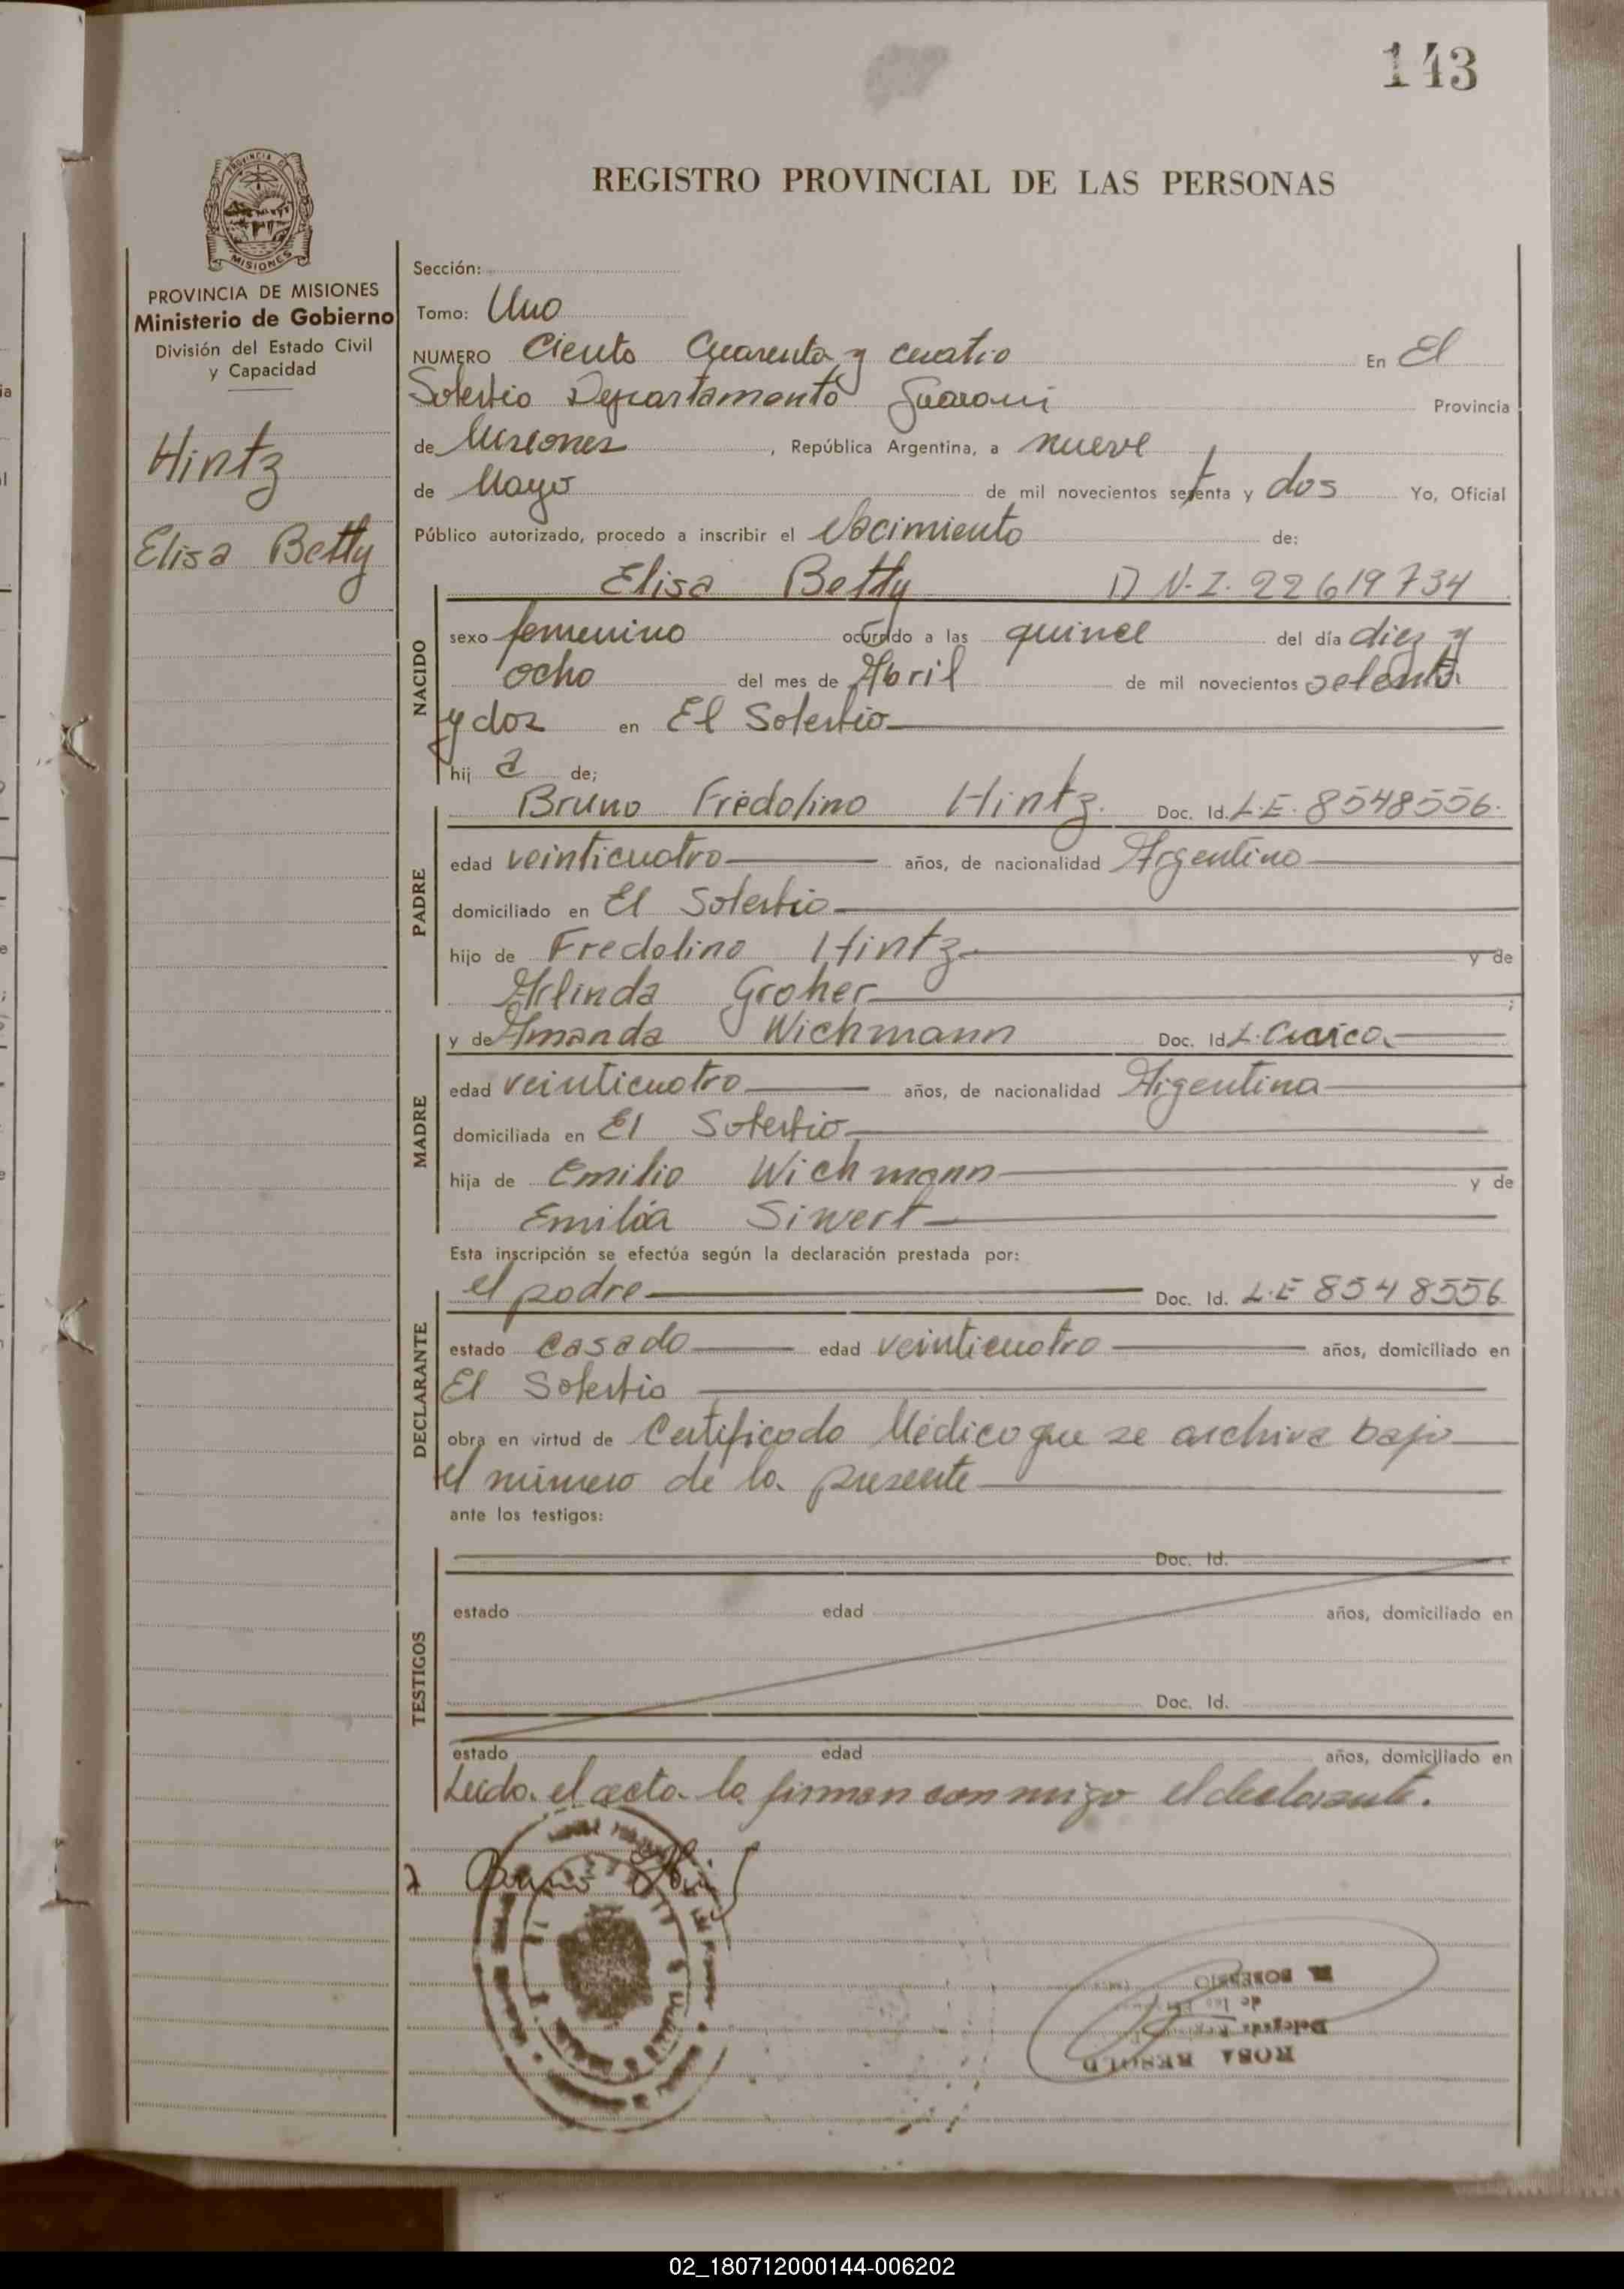 143
PROVINCIA DE
MISIONES
REGISTRO PROVINCIAL DE LAS PERSONAS
PROVINCIA DE MISIONES
Ministerio de Gobierno
División del Estado Civil
y Capacidad
Hintz
Elisa Betty
Sección:
Tomo: Uno
NUMERO Ciento Cuarenta y cuatro En El
Soberbio Departamento Guarani Provincia
de Misiones, República Argentina, a nueve
de Mayo de mil novecientos setenta y dos Yo, Oficial
Público autorizado, procedo a inscribir el Nacimiento de:
NACIDO
Elisa Betty D N.I. 22619734
sexo femenino ocurrido a las quince del día diez y
ocho del mes de Abril de mil novecientos setenta
y dos en El Soberbio
hija de;
PADRE
Bruno Fredolino Hintz. Doc. Id. L.E. 8548556.
edad veinticuatro años, de nacionalidad Argentino
domiciliado en El Soberbio
hijo de Fredolino Hintz y de
Arlinda Groher;
MADRE
y de Amanda Wichmann Doc. Id L. Civica
edad veinticuatro años, de nacionalidad Argentina
domiciliada en El Soberbio
hija de Emilio Wichmann y de
Emilia Siwert
Esta inscripción se efectúa según la declaración prestada por:
DECLARANTE
el padre Doc. Id. L.E 8548556
estado casado edad veinticuatro años, domiciliado en
El Soberbio
obra en virtud de Certificado Médico que se archiva bajo
el número de la presente
ante los testigos:
TESTIGOS
Doc. Id.
estado edad años, domiciliado en
Doc. Id.
estado edad años, domiciliado en
Leida el acta la firman conmigo el declarante.
Bruno
ROSA RESOLD
Delegada
de las
EL SOBERBIO
02_180712000144-006202